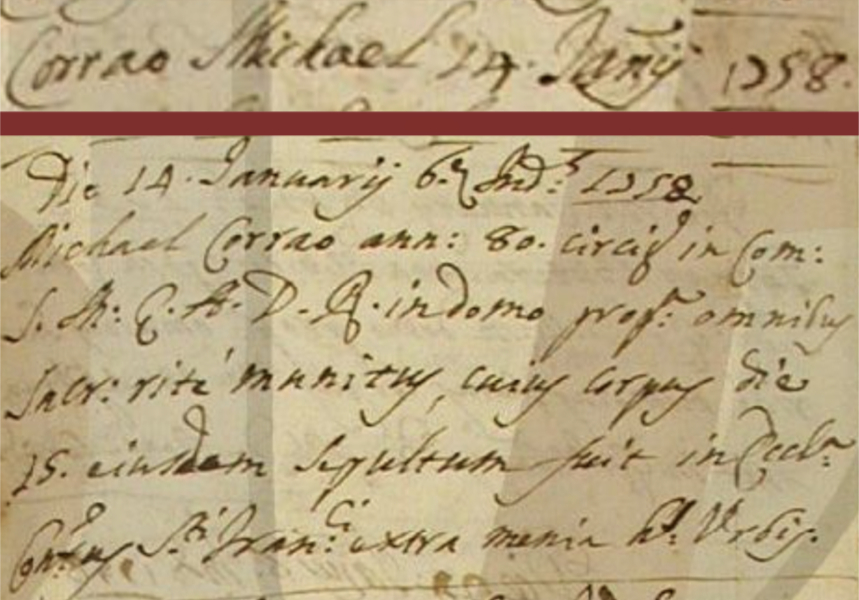 Corrao Michael 14. Janij 1758.
Die 14. Januarij 6.e Ind: 1758
Michael Corrao ann: 80. circit in Com:
S. M: E. A. D. R. in domo prop.a omnibus
Sacr: rite munitus, cuius corpus die
15. eiusdem sepultum fuit in Eccl.a
S.ti Fran.ci extra menia h. Urbis.